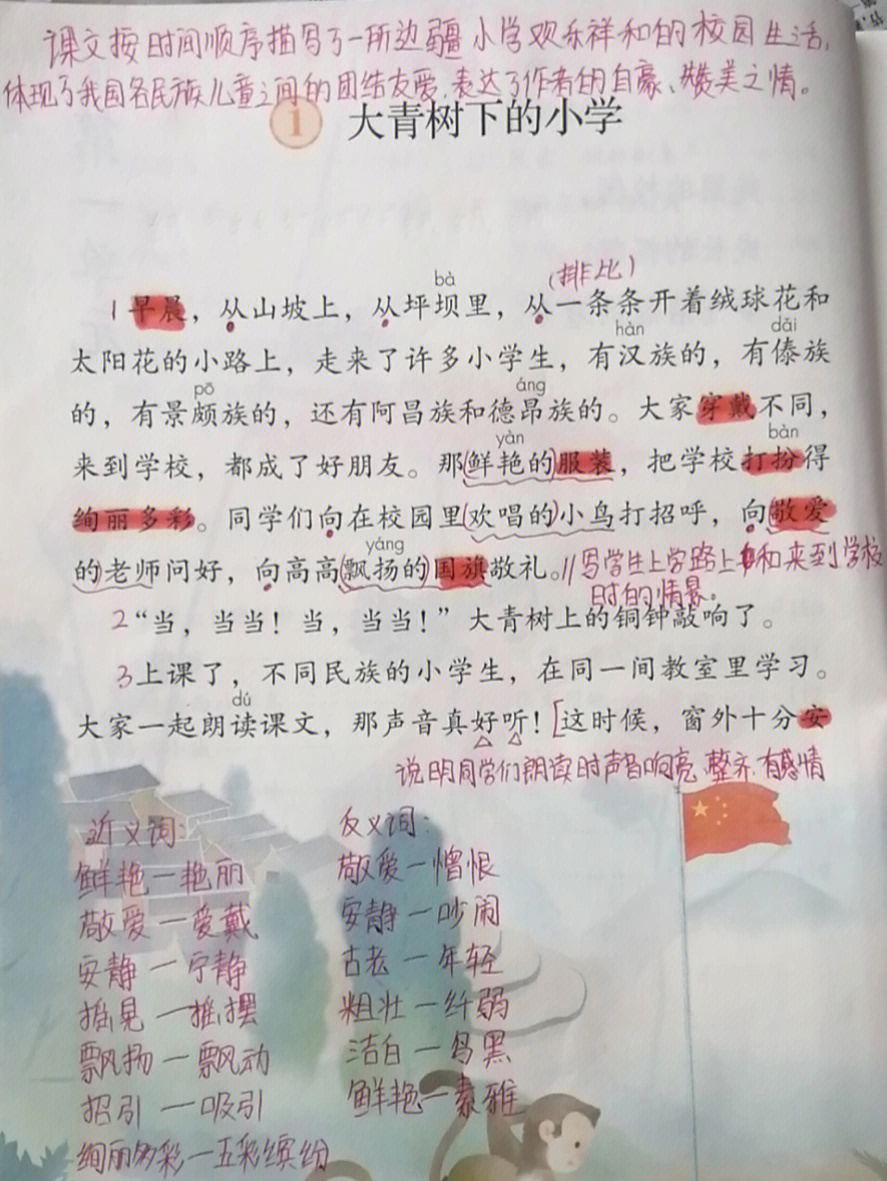 课文按时间顺序描写了一所边疆小学欢乐祥和的校园生活,
体现了我国各民族儿童之间的团结友爱,表达了作者的自豪、赞美之情。
1 大青树下的小学
(排比)
bà
1早晨，从山坡上，从坪坝里，从一条条开着绒球花和
hàn dǎi
太阳花的小路上，走来了许多小学生，有汉族的，有傣族
pō áng
的，有景颇族的，还有阿昌族和德昂族的。大家穿戴不同，
yàn bàn
来到学校，都成了好朋友。那(鲜艳的)服装，把学校打扮得
绚丽多彩。同学们向在校园里(欢唱的)小鸟打招呼，向(敬爱
yáng
的)老师问好，向高高(飘扬的)国旗敬礼。//写学生上学路上和来到学校
时的情景。
2“当，当当！当，当当！”大青树上的铜钟敲响了。
3上课了，不同民族的小学生，在同一间教室里学习。
dú
大家一起朗读课文，那声音真好听！[这时候，窗外十分安
说明同学们朗读时声音响亮、整齐、有感情
近义词:
鲜艳—艳丽
敬爱—爱戴
安静—宁静
摇晃—摇摆
飘扬—飘动
招引—吸引
绚丽多彩—五彩缤纷
反义词:
敬爱—憎恨
安静—吵闹
古老—年轻
粗壮—纤弱
洁白—乌黑
鲜艳—素雅